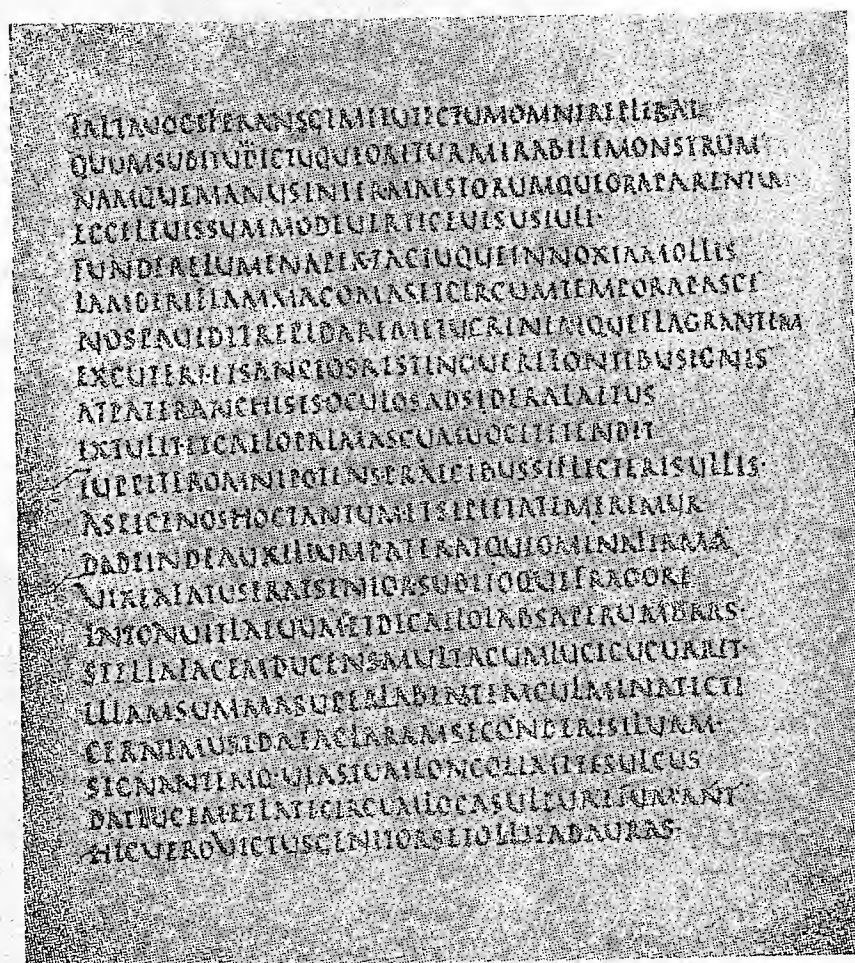 TALIAUOCIFERANSGEMITUTECTUMOMNEREPLEBAT
QUUMSUBITUDICTUQUEORITURMIRABILEMONSTRUM
NAMQUEMANUSINTERMAESTORUMQUEORAPARENTUM
ECCELEUISSUMMODEUERTICEUISUSIULI·
FUNDERELUMENAPEXTACTUQUEINNOXIAMOLLIS
LAMBEREFLAMMACOMASETCIRCUMTEMPORAPASCI
NOSPAUIDITREPIDAREMETUCRINEMQUEFLAGRANTEM
EXCUTEREETSANCTOSRESTINGUEREFONTIBUSIGNIS
ATPATERANCHISESOCULOSADSIDERALAETUS
EXTULITETCAELOPALMASCUMUOCETETENDIT
IUPPITEROMNIPOTENSPRAECIBUSSIFLECTERISULLIS·
ASPICENOSHOCTANTUMETSIPIETATEMEREMUR·
DADEINDEAUXILIUMPATERATQUEOMINAFIRMA
VIXEAFATUSERATSENIORSUBITOQUEFRAGORE
INTONUITLAEUUMETDECAELOLABSAPERUMBRAS·
STELLAFACEMDUCENSMULTACUMLUCECUCURRIT·
ILLAMSUMMASUPERLABENTEMCULMINATECTI
CERNIMUSIDAEACLARAMSECONDERESILUAM·
SIGNANTEMQ·UIASTUMLONGOLIMITESULCUS
DATLUCEMETLATECIRCUMLOCASULPUREFUMANT
HICUEROVICTUSGENITORSETOLLITADAURAS·